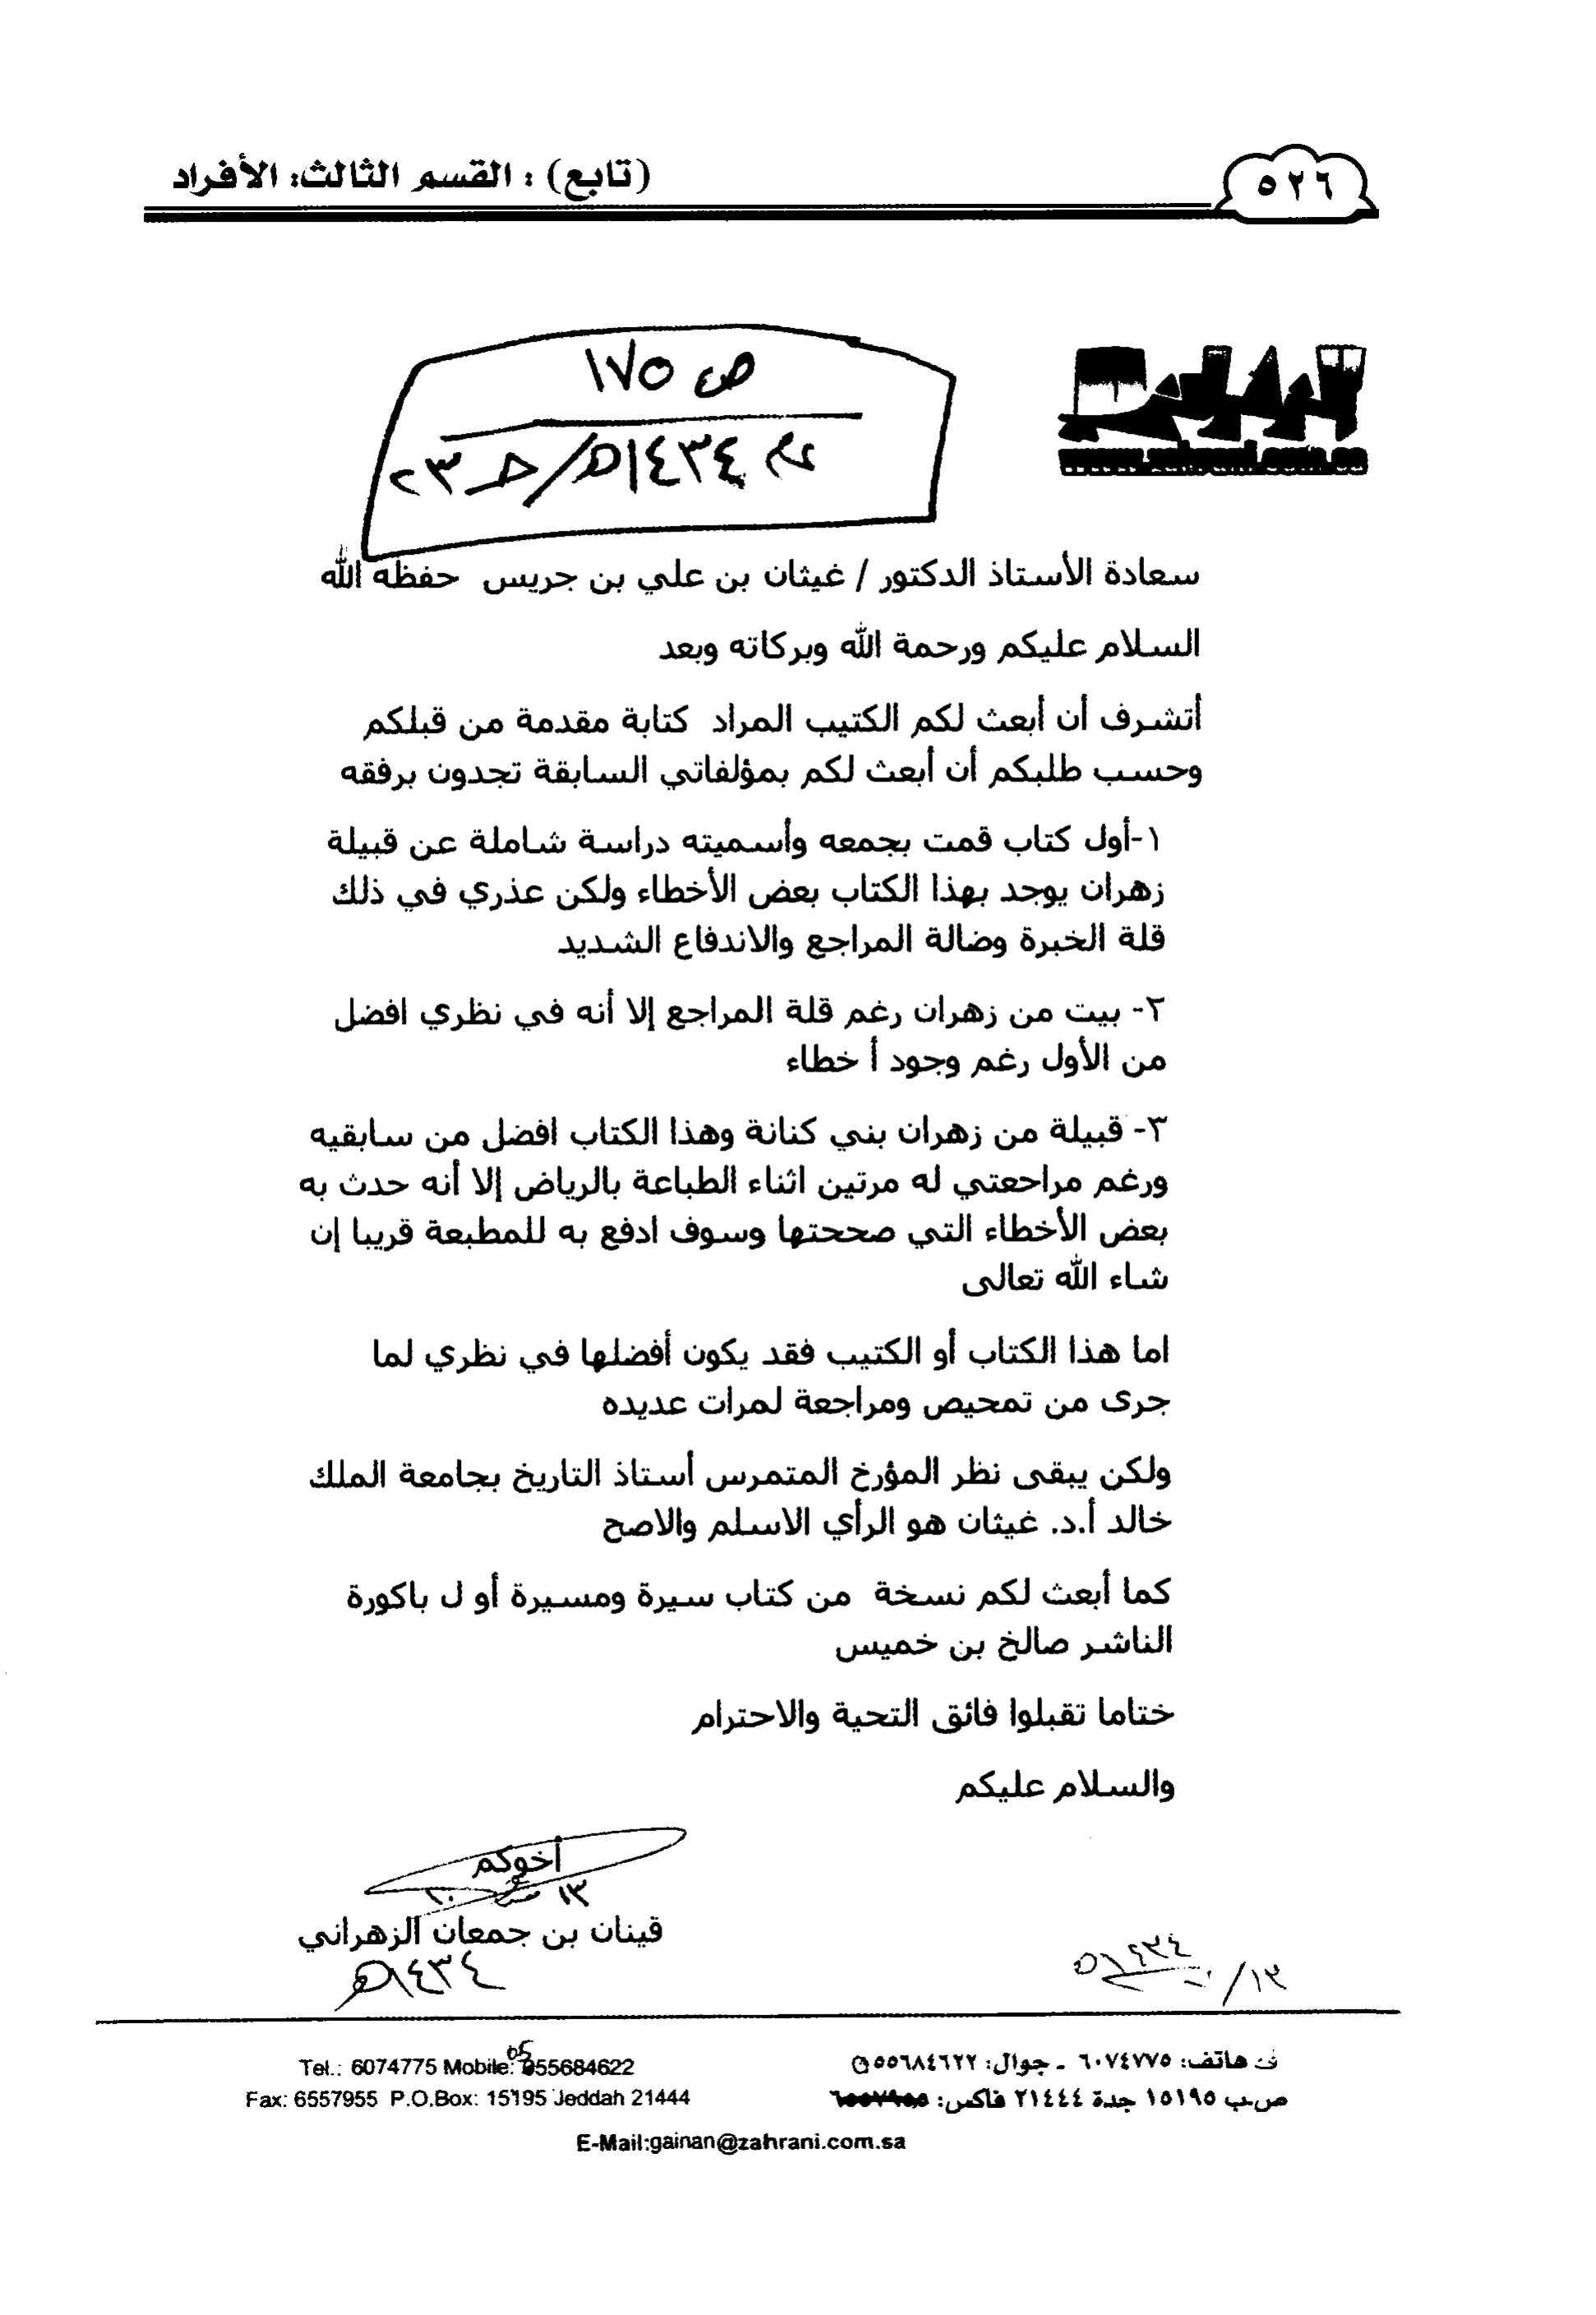 (تابع) : القسم الثالث: الأفراد
٥٢٦
ص ١٧٥
عام ١٤٣٤هـ/حـ ٢٣
www.zahrani.com.sa
سعادة الأستاذ الدكتور / غيثان بن علي بن جريس حفظه الله
السلام عليكم ورحمة الله وبركاته وبعد
أتشرف أن أبعث لكم الكتيب المراد كتابة مقدمة من قبلكم
وحسب طلبكم أن أبعث لكم بمؤلفاتي السابقة تجدون برفقه
١-أول كتاب قمت بجمعه وأسميته دراسة شاملة عن قبيلة
زهران يوجد بهذا الكتاب بعض الأخطاء ولكن عذري في ذلك
قلة الخبرة وضالة المراجع والاندفاع الشديد
٢- بيت من زهران رغم قلة المراجع إلا أنه في نظري افضل
من الأول رغم وجود أ خطاء
٣- قبيلة من زهران بني كنانة وهذا الكتاب افضل من سابقيه
ورغم مراجعتي له مرتين اثناء الطباعة بالرياض إلا أنه حدث به
بعض الأخطاء التي صححتها وسوف ادفع به للمطبعة قريبا إن
شاء الله تعالى
اما هذا الكتاب أو الكتيب فقد يكون أفضلها في نظري لما
جرى من تمحيص ومراجعة لمرات عديده
ولكن يبقى نظر المؤرخ المتمرس أستاذ التاريخ بجامعة الملك
خالد أ.د. غيثان هو الرأي الاسلم والاصح
كما أبعث لكم نسخة من كتاب سيرة ومسيرة أو ل باكورة
الناشر صالخ بن خميس
ختاما تقبلوا فائق التحية والاحترام
والسلام عليكم
أخوكم
قينان بن جمعان الزهراني
١٤٣٤هـ
هاتف: ٦٠٧٤٧٧٥ - جوال: ٠٥٥٦٨٤٦٢٢
ص.ب ١٥١٩٥ جدة ٢١٤٤٤ فاكس: ٦٥٥٧٩٥٥
Tel.: 6074775 Mobile: 055684622
05
Fax: 6557955 P.O.Box: 15195 Jeddah 21444
E-Mail:gainan@zahrani.com.sa